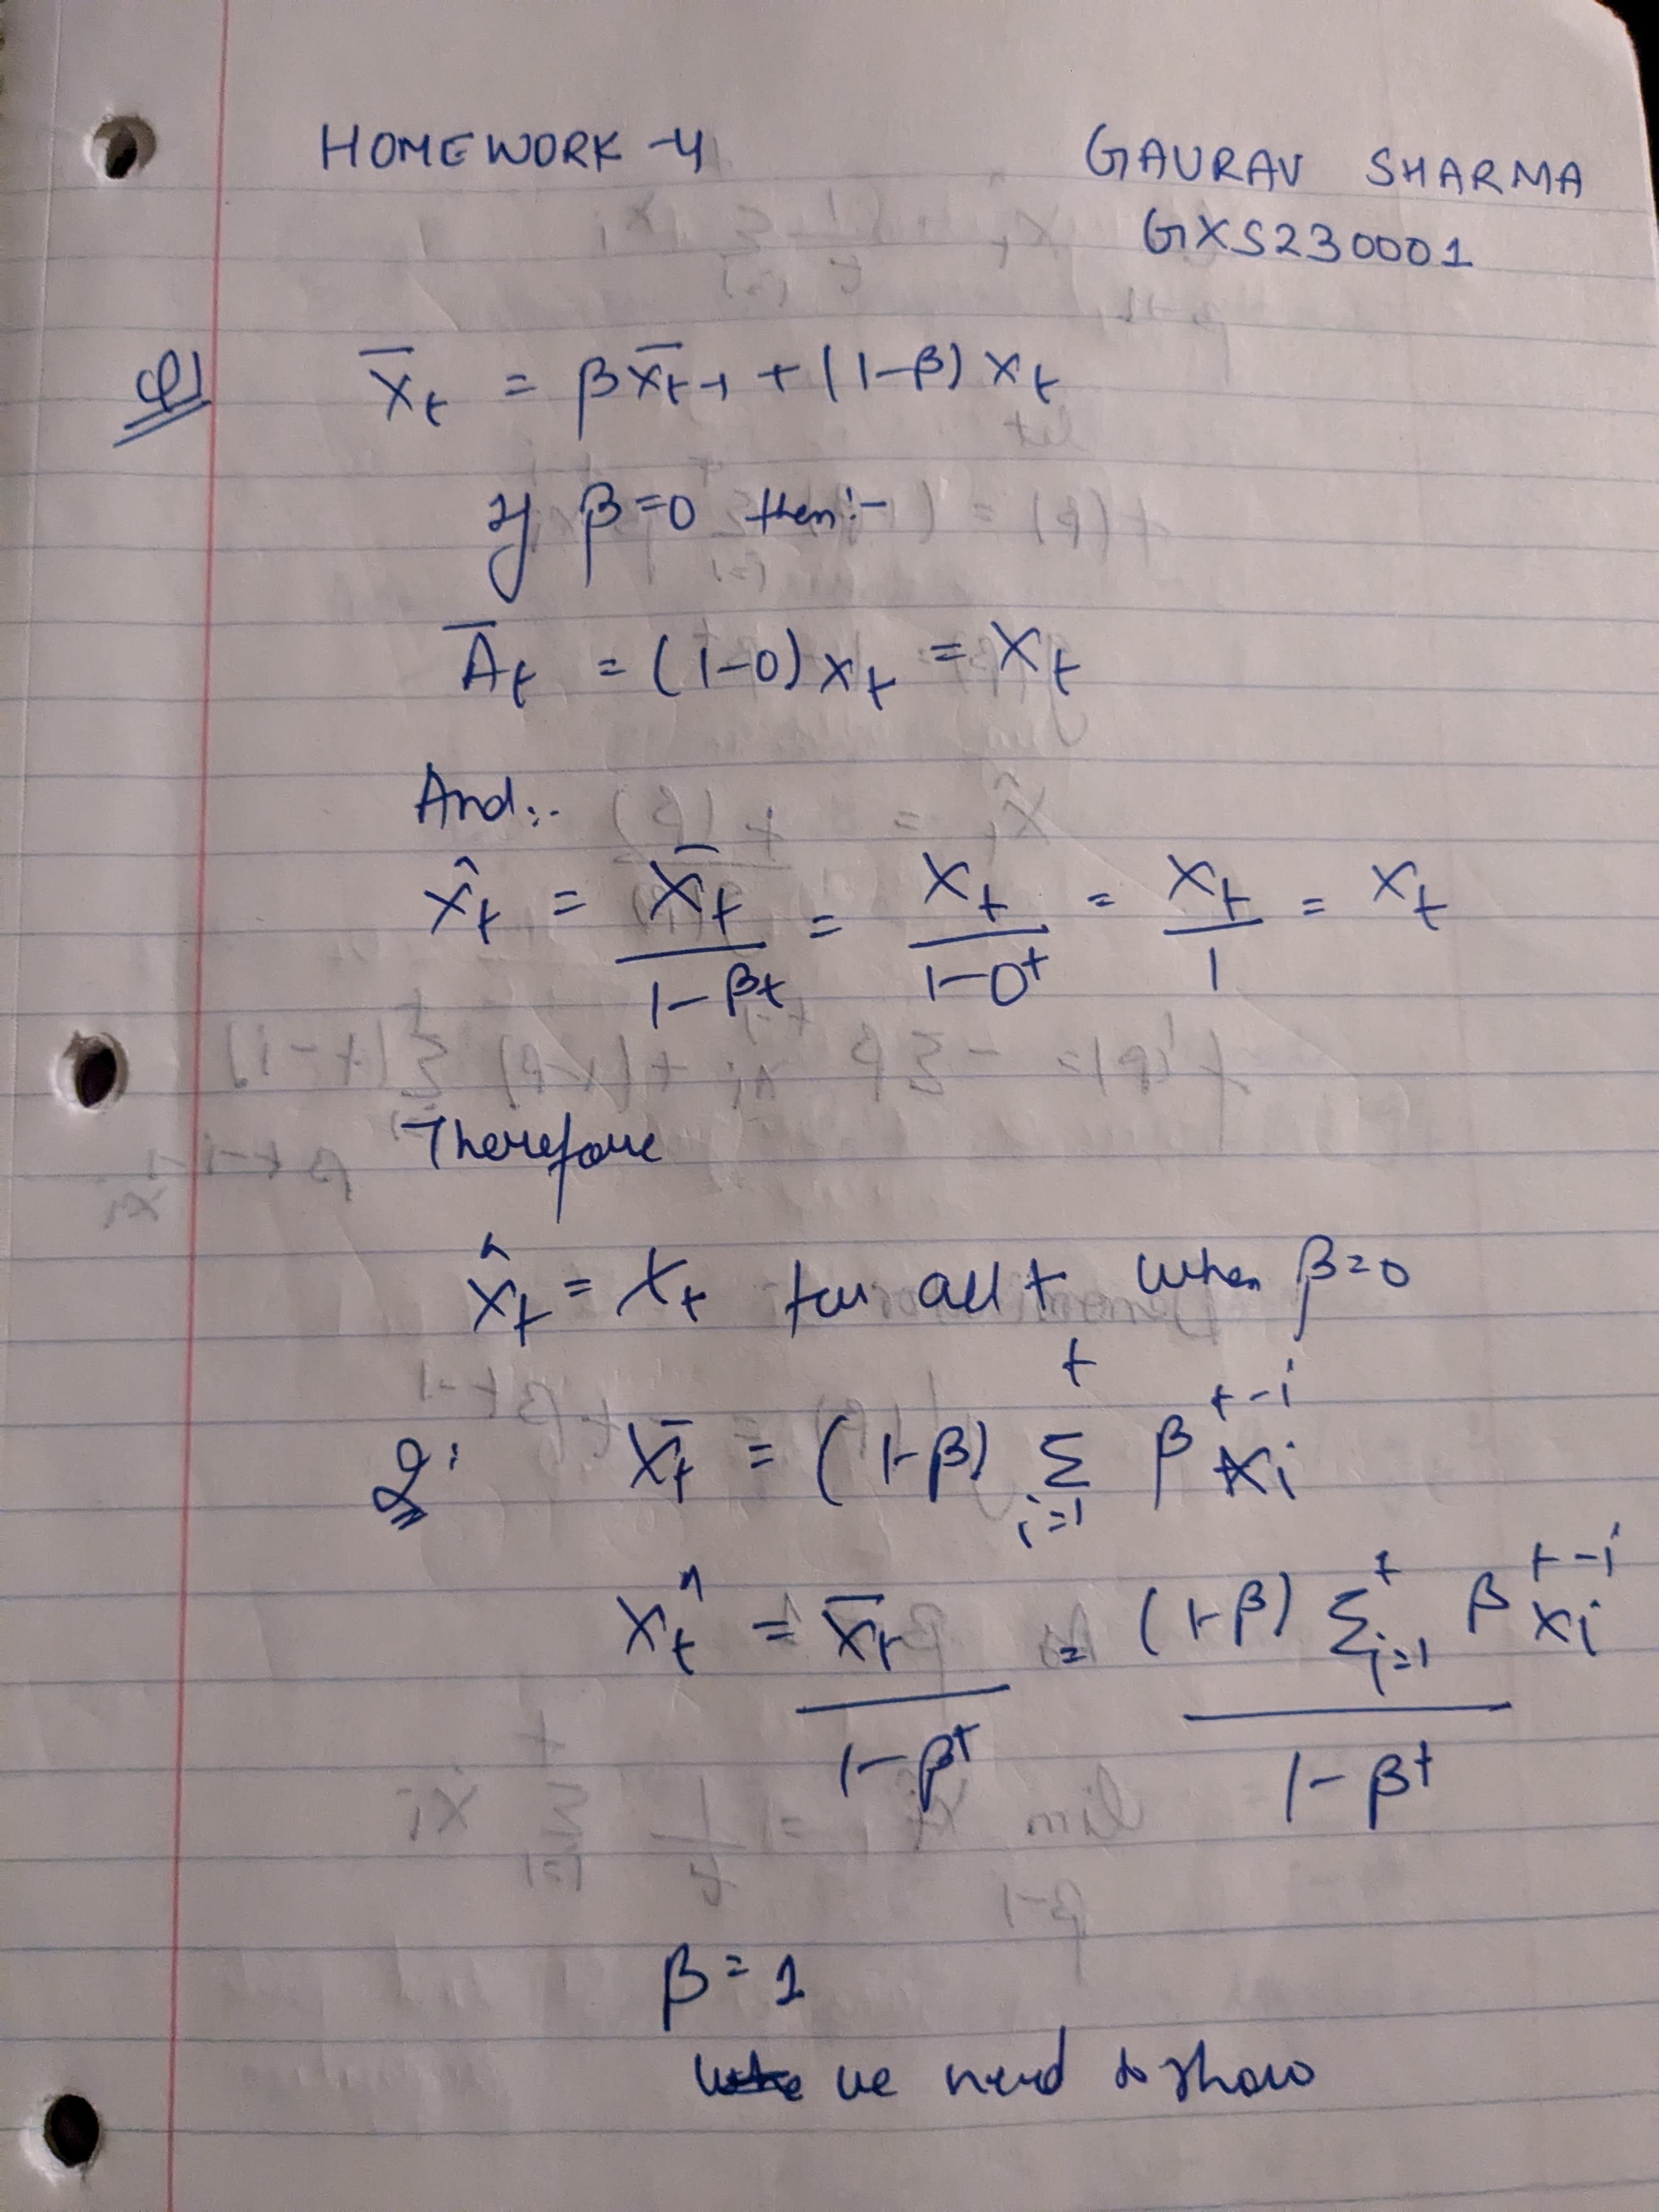 HOMEWORK -4 GAURAV SHARMA
GXS230001
Q1 X̄t = βX̄t-1 + (1-β) Xt
If β=0 then:-
Āt = (1-0) xt = Xt
And:-
x̂t = X̄t / 1-βt = Xt / 1-0^t = Xt / 1 = Xt
Therefore
x̂t = Xt for all t when β=0
2: X̄t = (1-β) Σ_{i=1}^{t} β^{t-i} Xi
Xt^ = X̄t / 1-β^t = (1-β) Σ_{i=1}^{t} β^{t-i} Xi / 1-β^t
β=1
we need to show